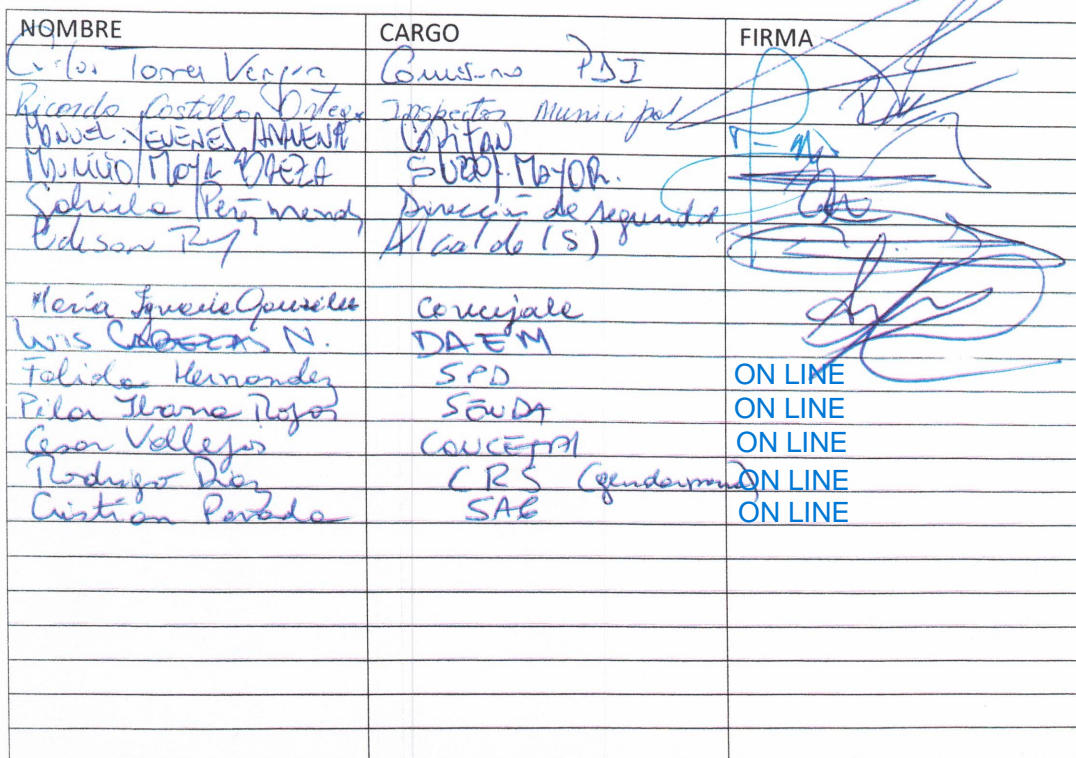 NOMBRE CARGO FIRMA
Carlos Torres Comisario PDI
Ricardo Castillo Ortega Inspector Municipal
MANUEL YEVENES ARAVENA CAPITAN
MAURICIO MOYA BAEZA SUBOF. MAYOR.
Gabriela Dirección de seguridad
Edison Alcalde (S)
María Ignacia González concejala
LUIS CABEZAS N. DAEM
Hernandez SPD ON LINE
Pilar Rojas SENDA ON LINE
Cesar Vallejos CONCEJAL ON LINE
Rodrigo Diaz CRS (gendarmeria) ON LINE
Cristian Parada SAG ON LINE